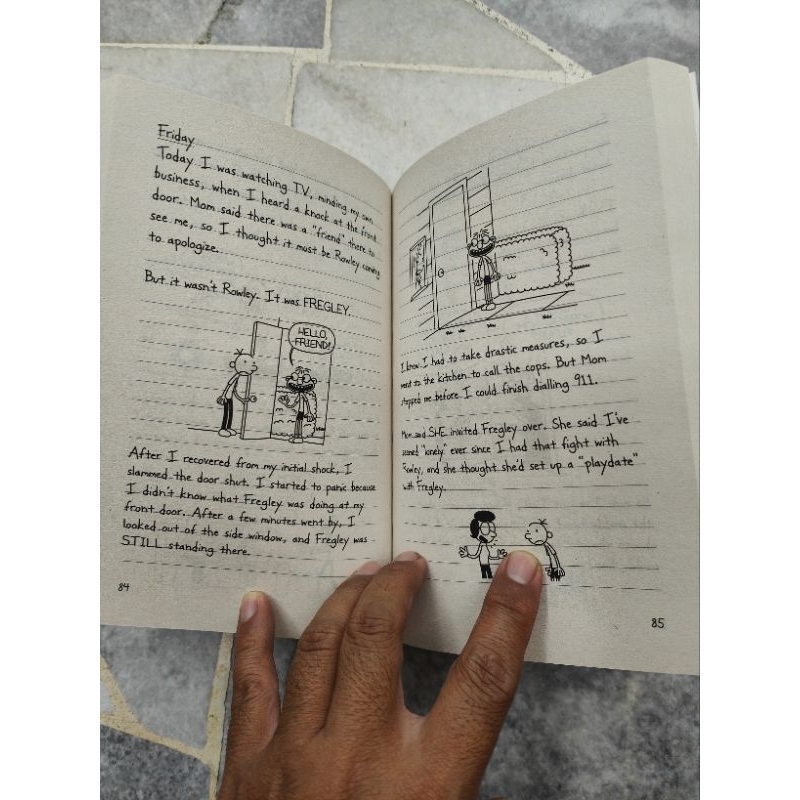 Friday
Today I was watching TV, minding my own
business, when I heard a knock at the front
door. Mom said there was a "friend" there to
see me, so I thought it must be Rowley coming
to apologize.
But it wasn't Rowley. It was FREGLEY.
HELLO,
FRIEND!
After I recovered from my initial shock, I
slammed the door shut. I started to panic because
I didn't know what Fregley was doing at my
front door. After a few minutes went by, I
looked out of the side window, and Fregley was
STILL standing there.
84
I knew I had to take drastic measures, so I
went to the kitchen to call the cops. But Mom
stopped me before I could finish dialling 911.
Mom said SHE invited Fregley over. She said I've
seemed "lonely" ever since I had that fight with
Rowley, and she thought she'd set up a "playdate"
with Fregley.
85